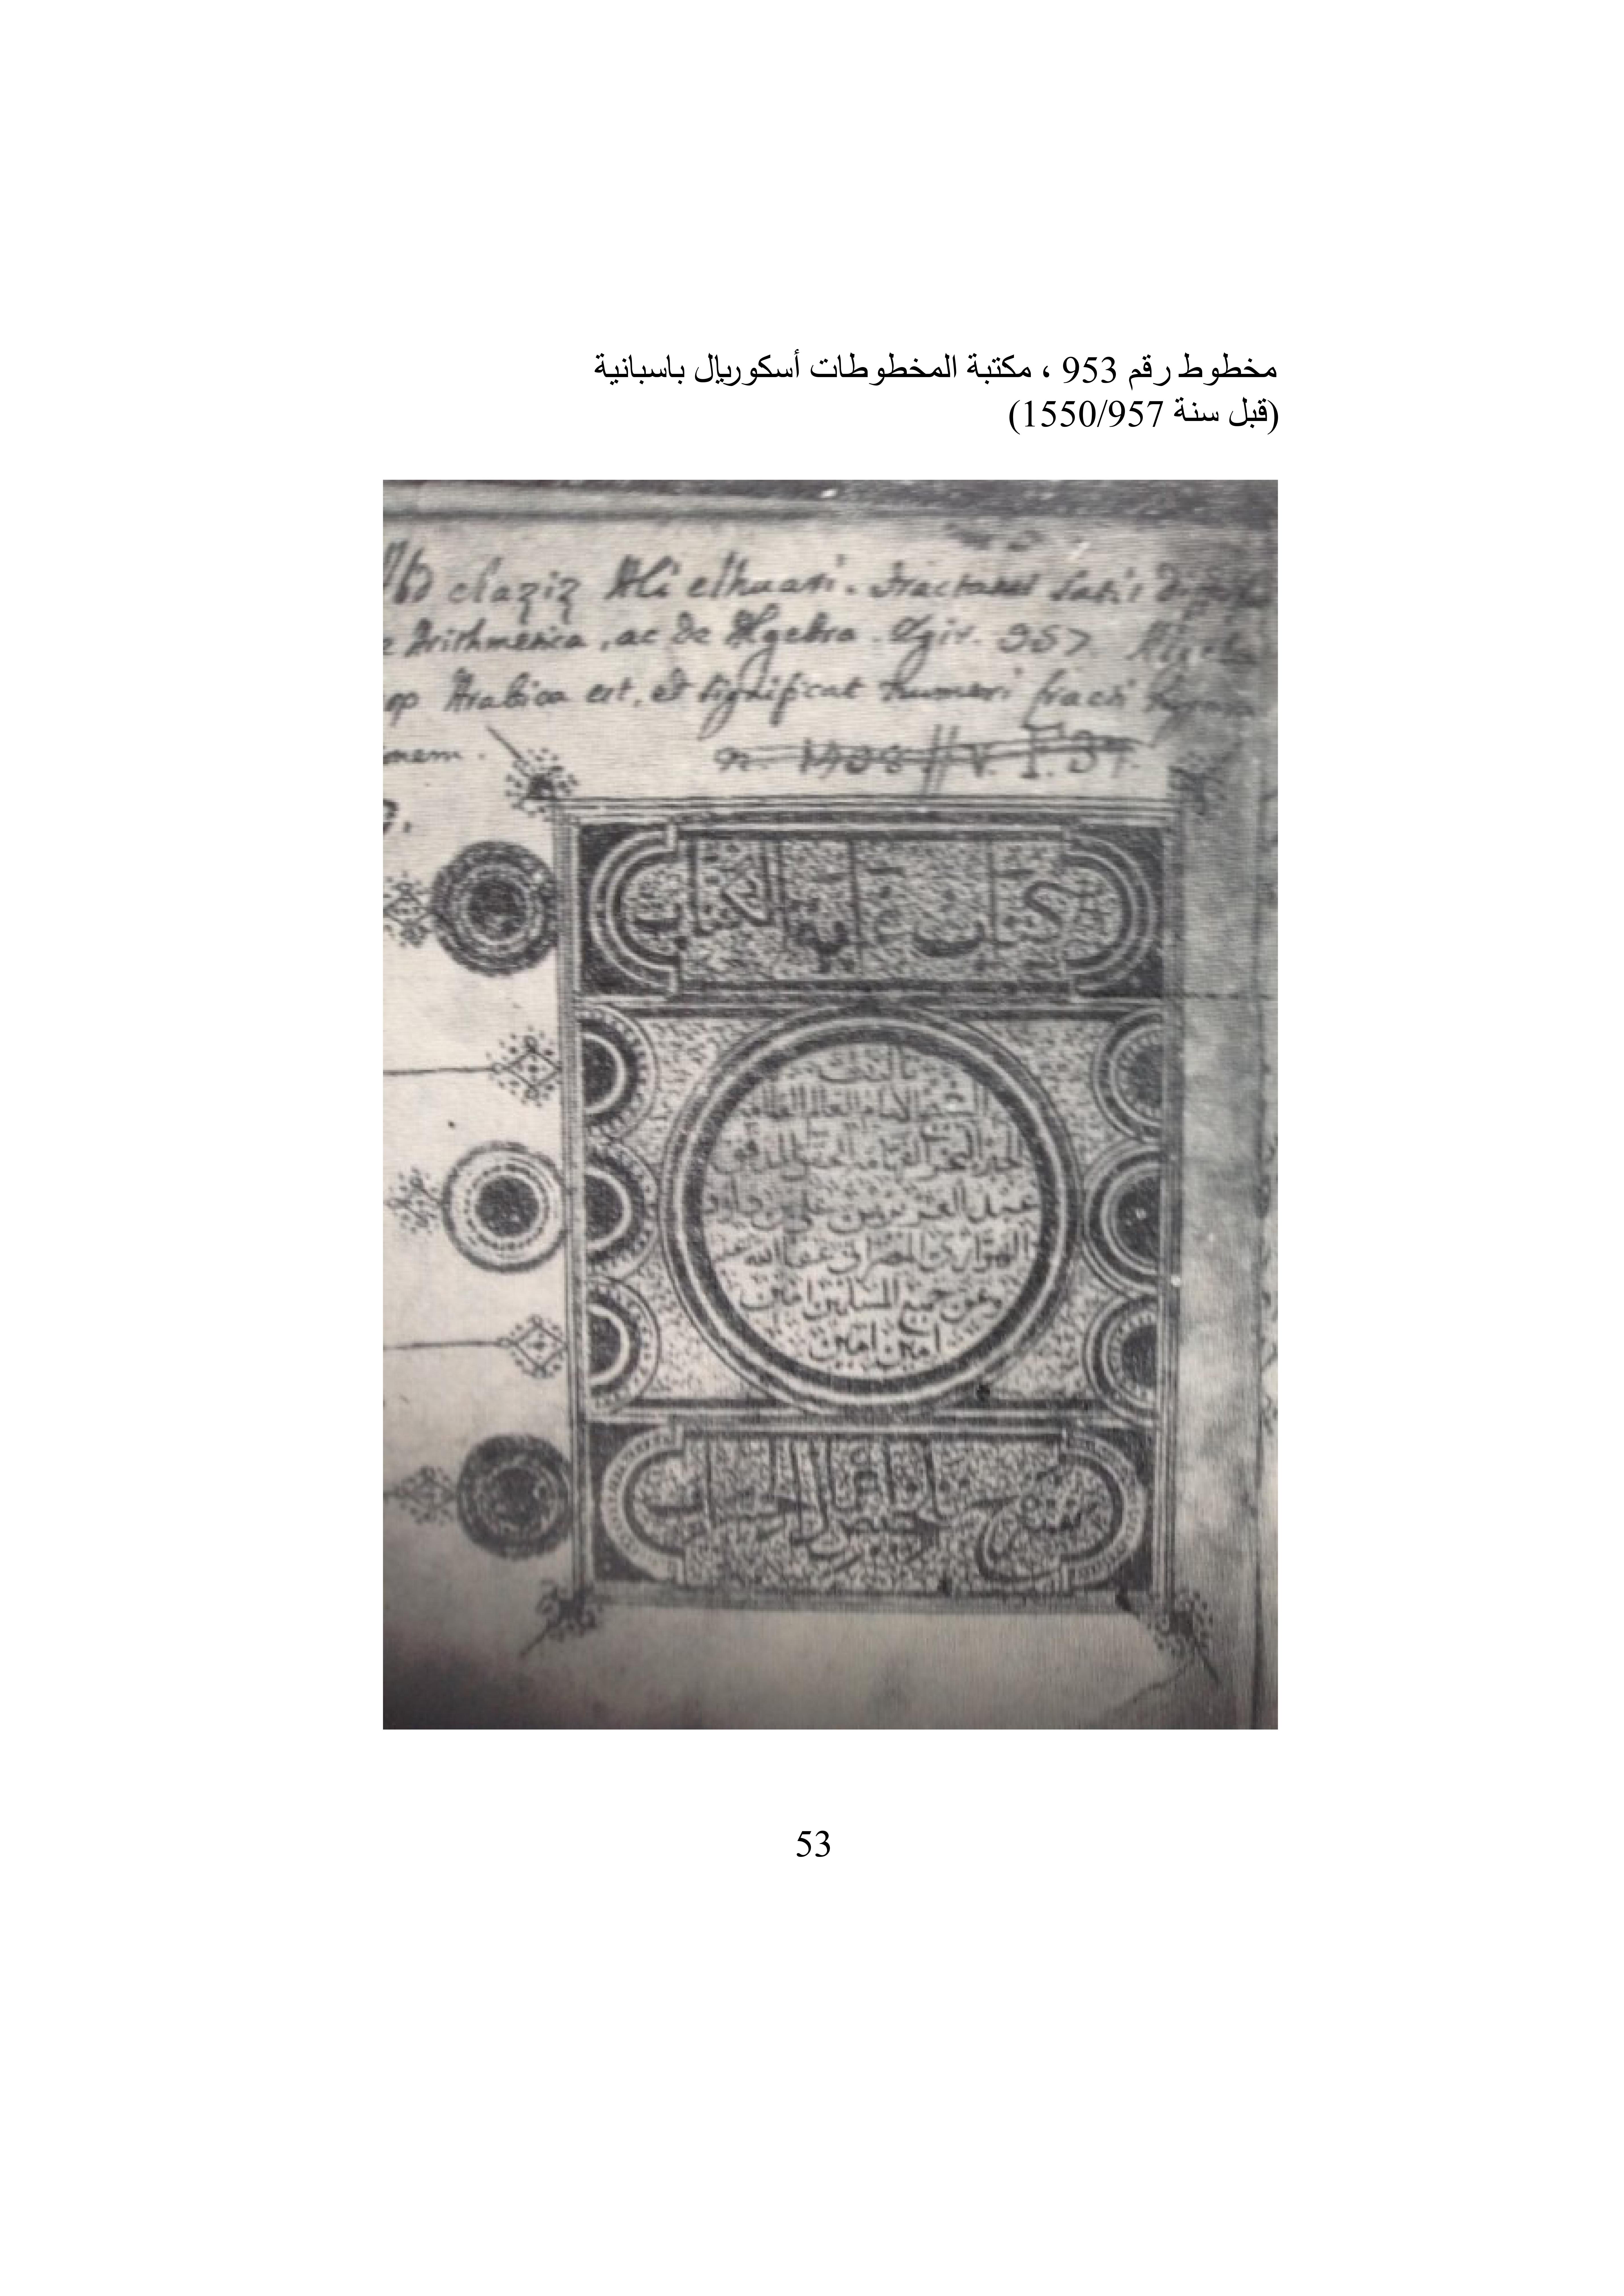 مخطوط رقم 953 ، مكتبة المخطوطات أسكوريال باسبانية
(قبل سنة 1550/957)
elaziz Ali elhuari. Tractatus satis
Arithmetica, ac de Algebra. Egir. 957
Arabica est, et significat numeri fracti
كتاب الكتاب
تأليف
الشيخ الامام العالم العلامة
الحبر البحر الفهامة المحقق المدقق
عبد العزيز بن علي بن داود
الهواري المصراتي عفا الله عنه
وعن جميع المسلمين امين
امين امين
تلخيص الحساب
53